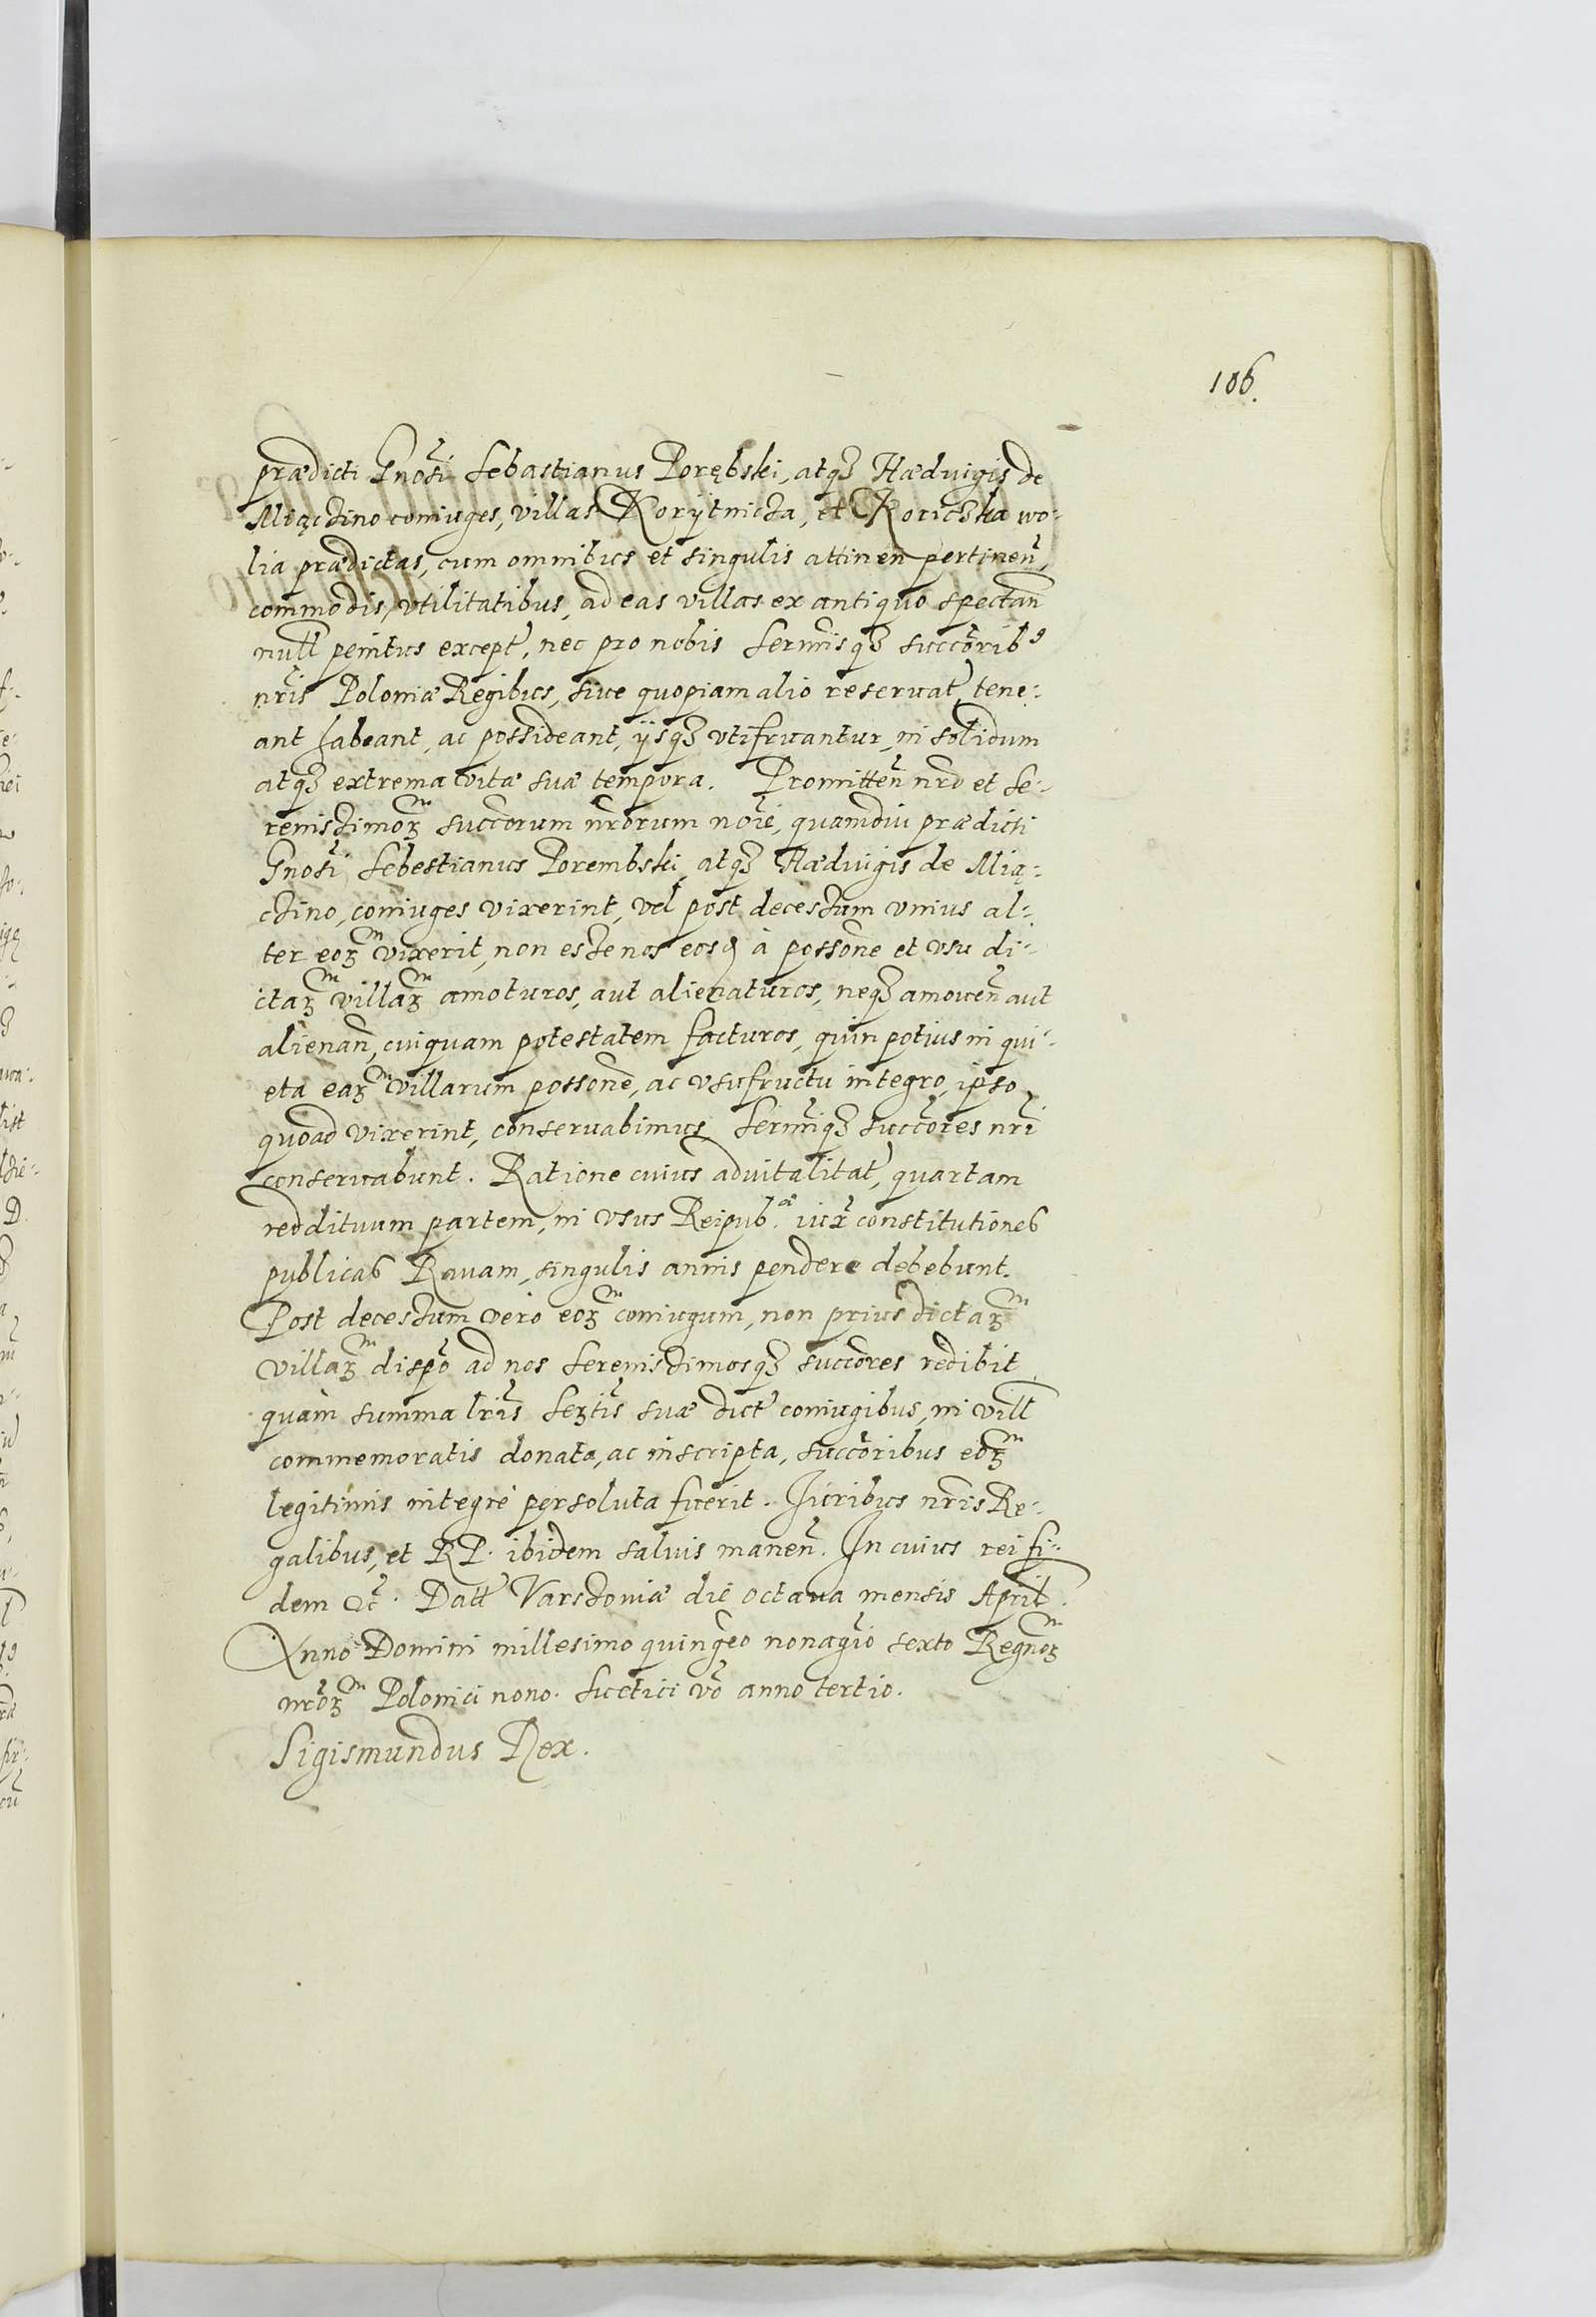 106.
prædicti Gnosi Sebastianus Porębski, atqȝ Hædvigis de
Miąssino coniuges, villas Korytnicza, et Koriczka wo-
lia prædictas, cum omnibus et singulis attinen pertinen,
commodis, vtilitatibus, ad eas villas ex antiquo spectan
null penitus except, nec pro nobis Sermisqȝ succoribꝰ
nris Poloniæ Regibus, siue quopiam alio reseruat, tene-
ant habeant, ac possideant, ijsqȝ vtifruantur, in solidum
atqȝ extrema vitæ suæ tempora. Promitten nro et Se-
renissimoꝝ succorum nrorum noie, quamdiu prædicti
Gnosi Sebestianus Porembski, atqȝ Hædvigis de Mią-
ssino, coniuges vixerint, vel post decessum vnius al-
ter eoꝝ vixerit, non esse nos eosqȝ à possone et vsu di-
ctaꝝ villaꝝ amoturos, aut alienaturos, neqȝ amouen aut
alienan, cuiquam potestatem facturos, quin potius in qui-
eta eaꝝ villarum possone, ac vsufructu integro, ipso
quoad vixerint, conseruabimus, Sermiqȝ succores nri
conseruabunt. Ratione cuius advitalitat, quartam
reddituum partem, in vsus Reipub.æ iux constitutiones
publicas Rauam, singulis annis pendere debebunt.
Post decessum vero eoꝝ coniugum, non prius dictaꝝ
villaꝝ dispo ad nos Serenissimosqȝ succores redibit,
quàm summa lris Seꝝtis suæ dict coniugibus, in vill
commemoratis donata, ac inscripta, succoribus eoꝝ
legitimis integrè persoluta fuerit. Juribus nris Re-
galibus, et RP. ibidem saluis manen. In cuius rei fi-
dem &c. Datt Varssoniæ die octaua mensis April.
Anno Domini millesimo quingeo nonagio sexto Regnoꝝ
nroꝝ Polonici nono. Suetici vo anno tertio.
Sigismundus Rex.